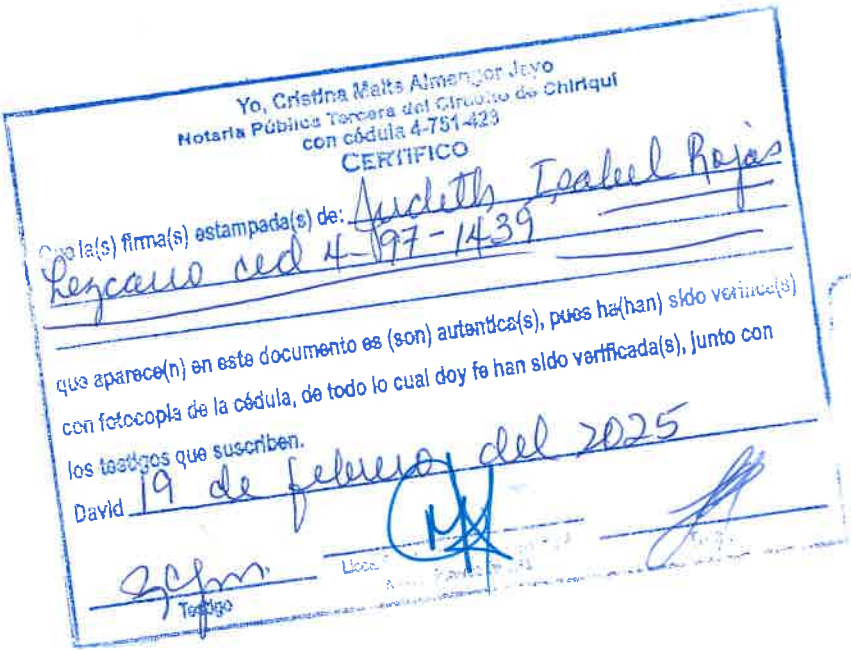 Yo, Cristina Maits Almengor Jayo
Notaria Pública Tercera del Circuito de Chiriquí
con cédula 4-751-423
CERTIFICO
la(s) firma(s) estampada(s) de: Judeth Isabel Rojas
Lezcano ced 4-97-1439
que aparece(n) en este documento es (son) autentica(s), pues ha(han) sido
con fotocopia de la cédula, de todo lo cual doy fe han sido verificada(s), junto con
los testigos que suscriben.
David 19 de febrero del 2025
Testigo